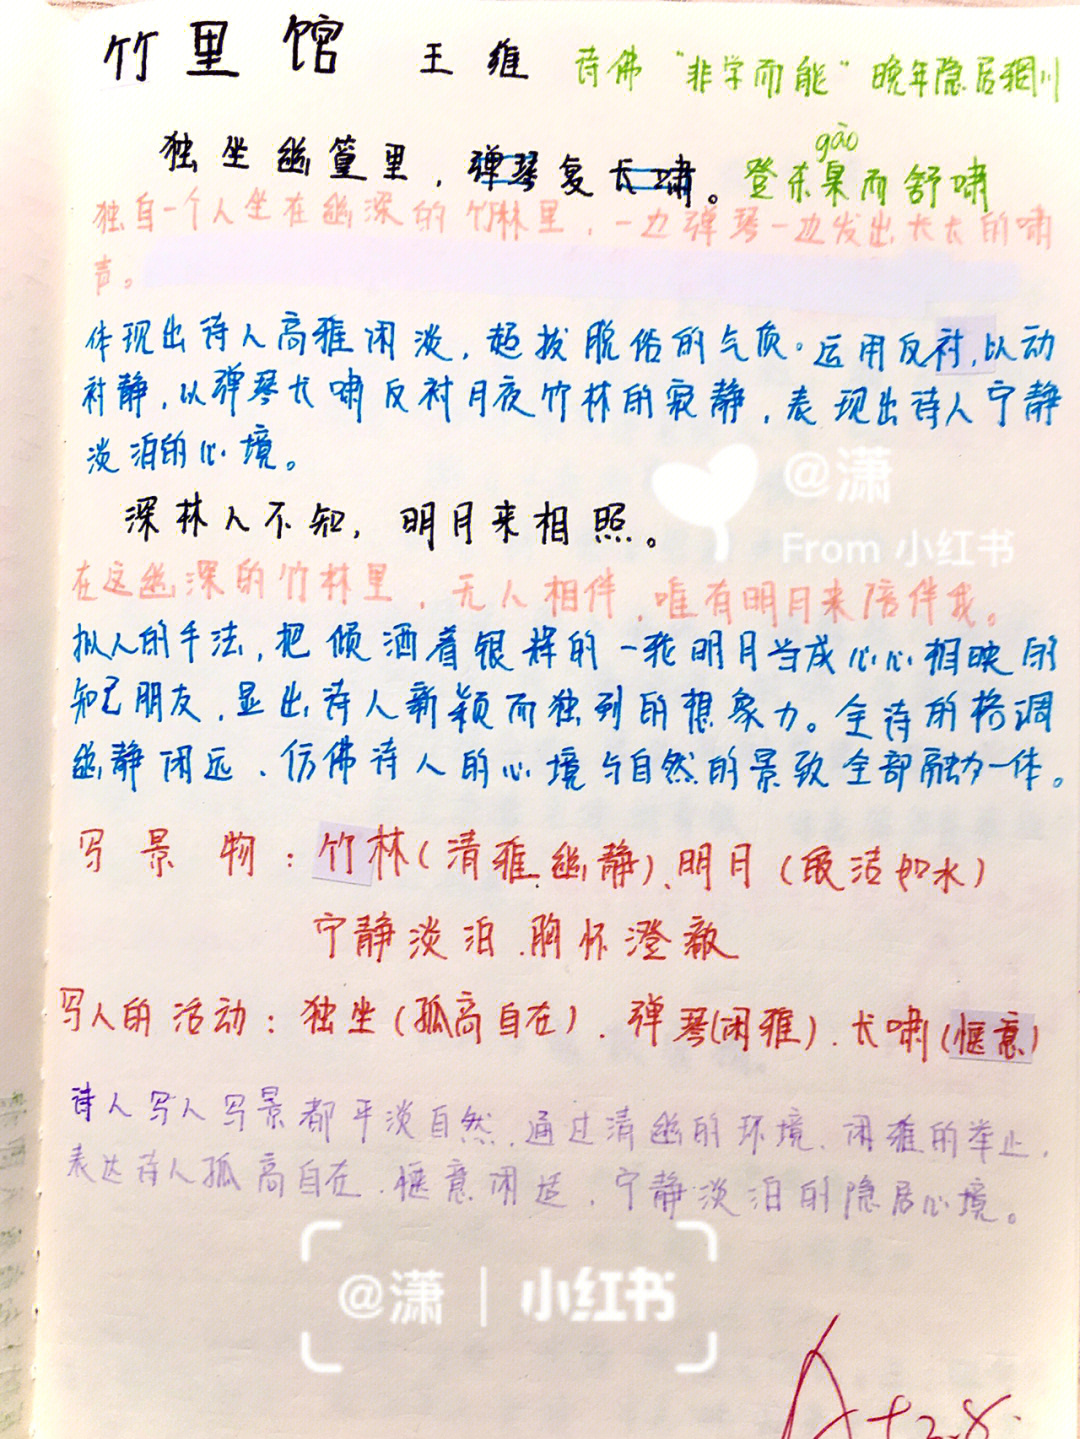 竹里馆 王维 诗佛 "非学而能" 晚年隐居辋川
gāo
独坐幽篁里，弹琴复长啸。登东皋而舒啸
独自一个人坐在幽深的竹林里，一边弹琴一边发出长长的啸
声。
体现出诗人高雅闲淡，超拔脱俗的气质。运用反衬，以动
衬静，以弹琴长啸反衬月夜竹林的寂静，表现出诗人宁静
淡泊的心境。
@潇
深林人不知，明月来相照。
From 小红书
在这幽深的竹林里，无人相伴，唯有明月来陪伴我。
拟人的手法，把倾洒着银辉的一轮明月当成心心相映的
知己朋友，显出诗人新颖而独列的想象力。全诗的格调
幽静闲远、仿佛诗人的心境与自然的景致全部融为一体。
写景物：竹林(清雅、幽静)、明月(皎洁如水)
宁静淡泊、胸怀澄澈
写人的活动：独坐(孤高自在)、弹琴(闲雅)、长啸(惬意)
诗人写人写景都平淡自然，通过清幽的环境、闲雅的举止，
表达诗人孤高自在、惬意闲适、宁静淡泊的隐居心境。
@潇 | 小红书